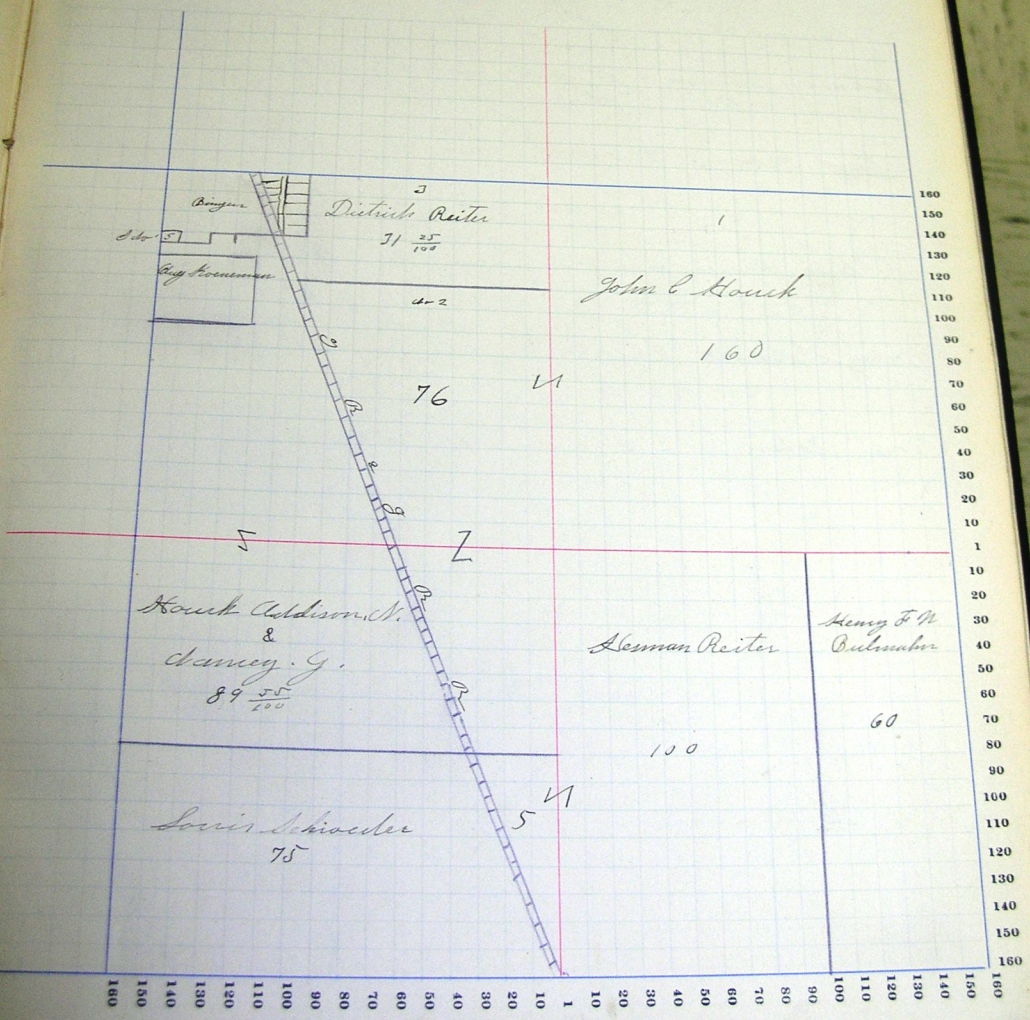 3
Dietrich Reiter
31 25/100
Bingen
5
Aug Koeneman
1
John C Houck
160
76
G
R
&
I
R
R
Houck Addison, N.
&
G.
89 55/100
Herman Reiter
100
Henry F W
Bulmahn
60
Louis Schroeder
75
5
160
150
140
130
120
110
100
90
80
70
60
50
40
30
20
10
1
10
20
30
40
50
60
70
80
90
100
110
120
130
140
150
160
160 150 140 130 120 110 100 90 80 70 60 50 40 30 20 10 1 10 20 30 40 50 60 70 80 90 100 110 120 130 140 150 160